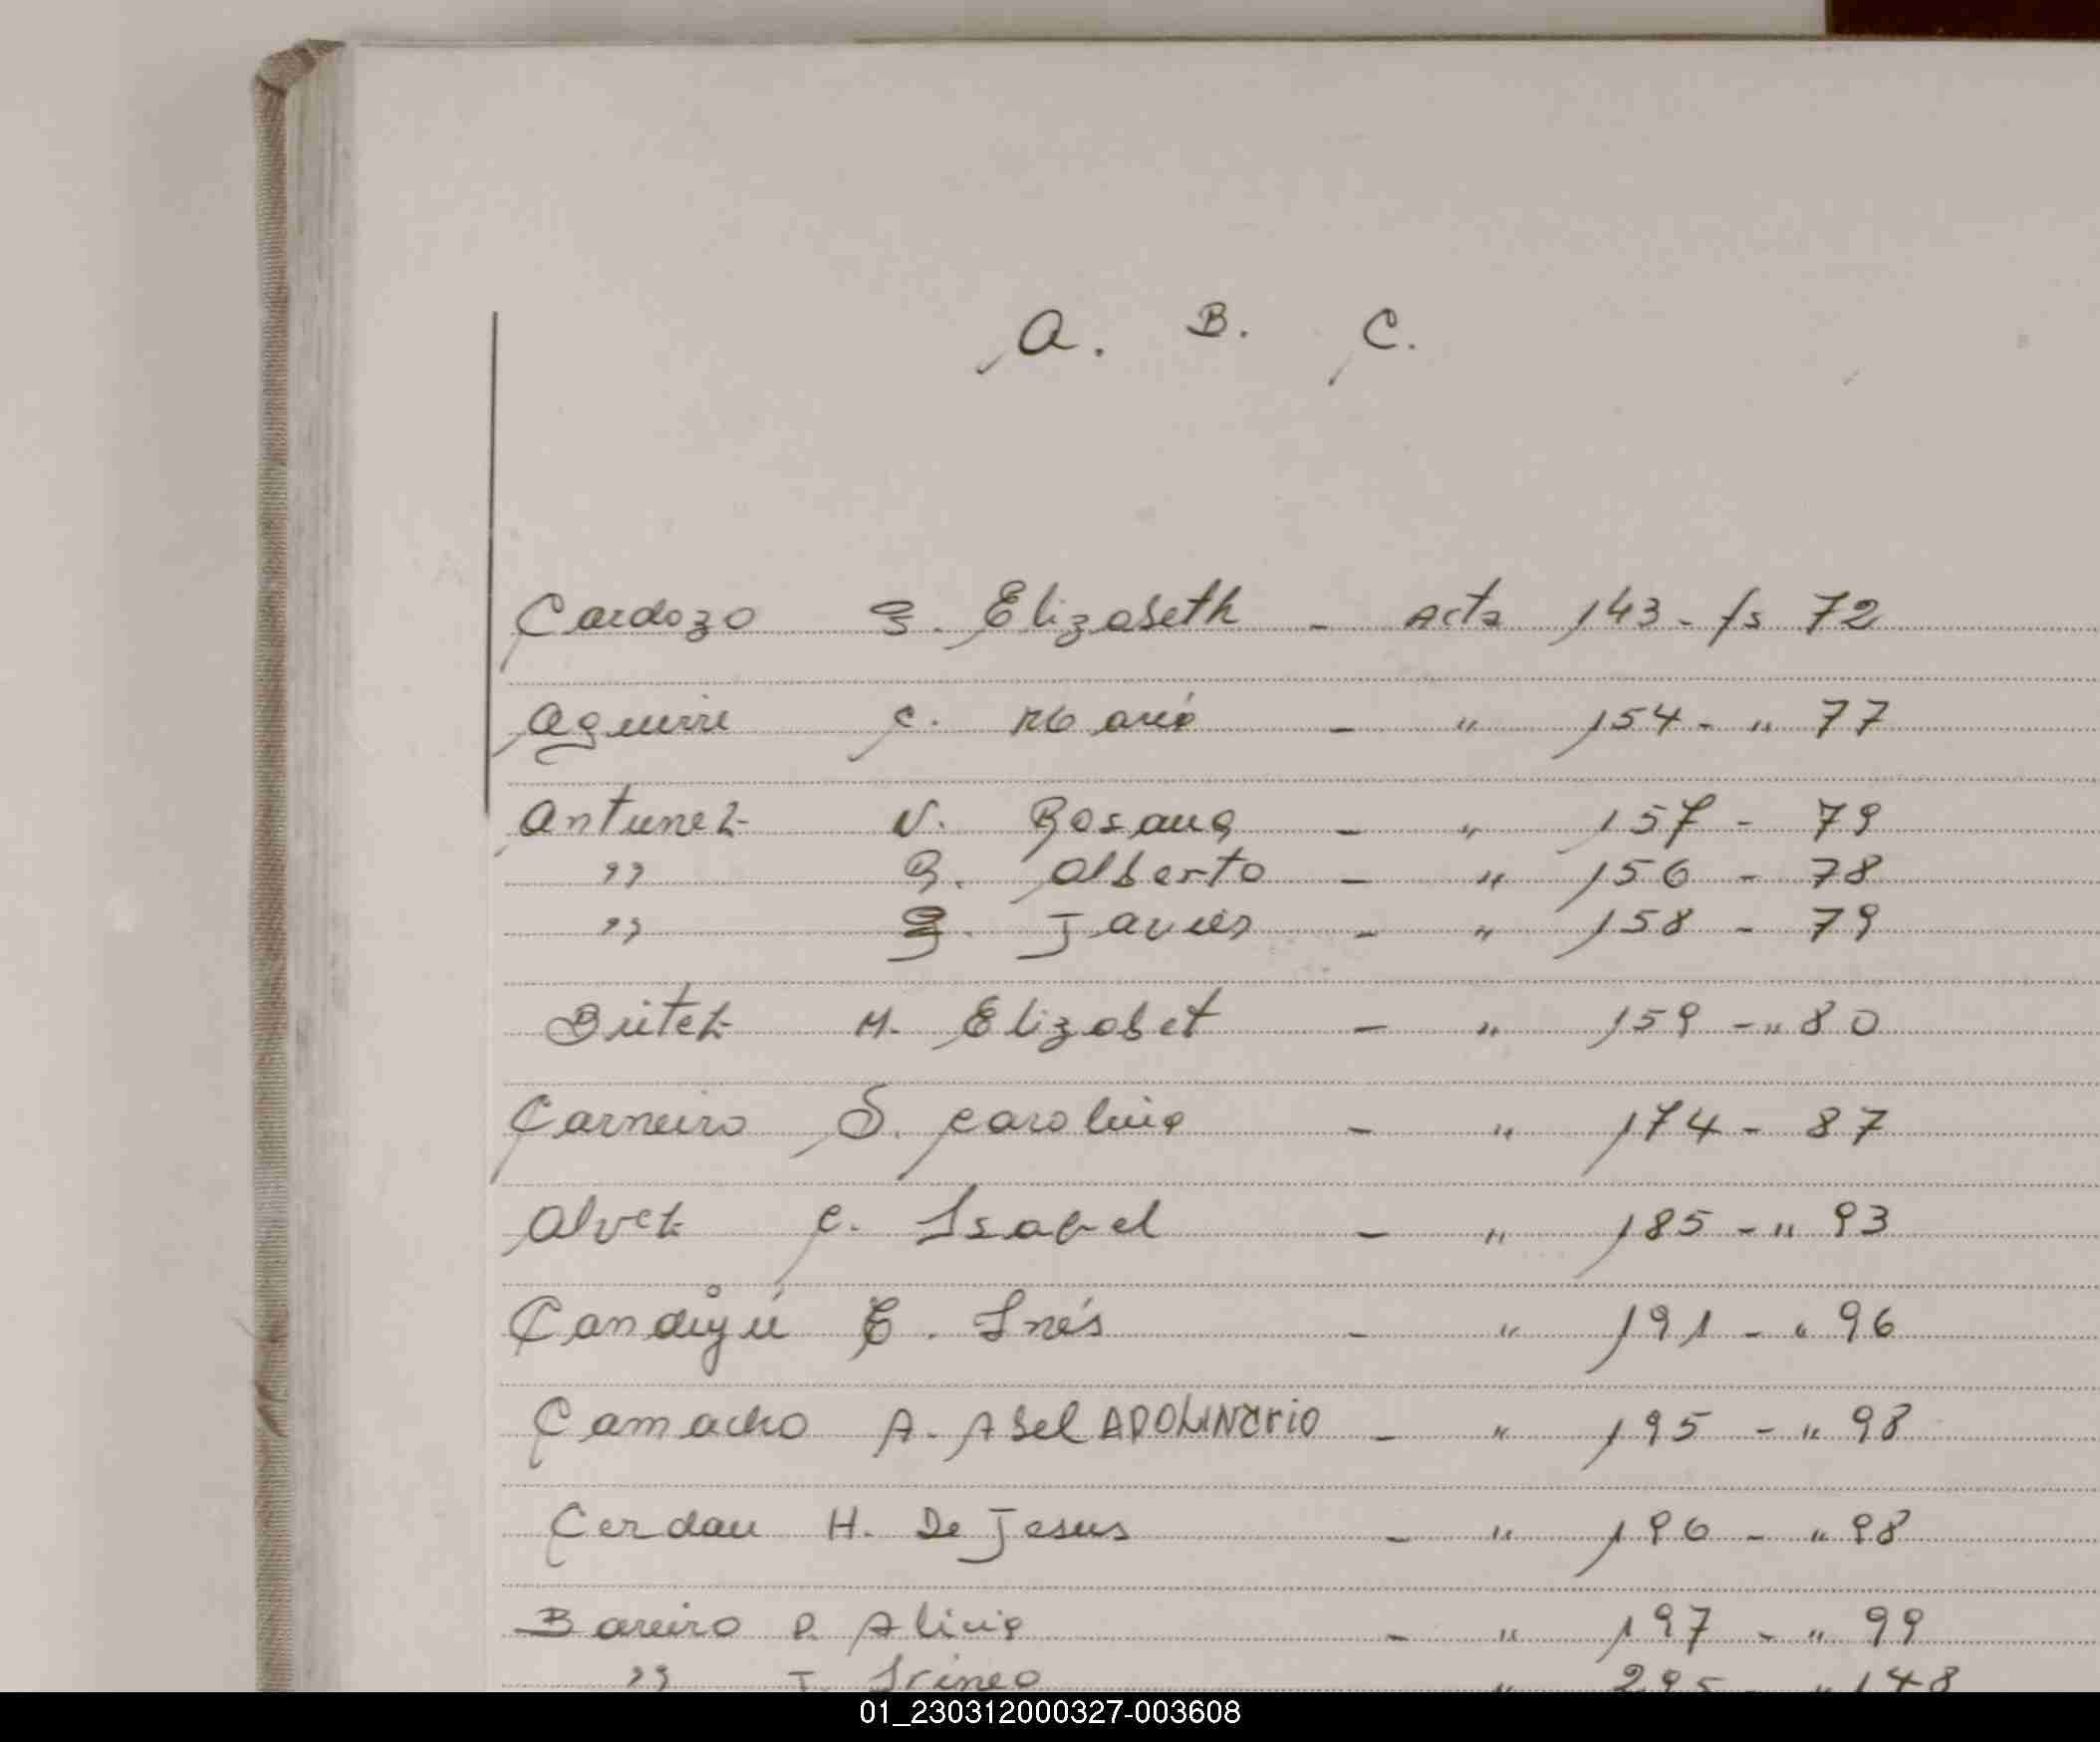 A. B. C.
Cardozo G. Elizabeth - Acta 143 - fs 72
Aguirre C. María - " 154 - " 77
Antunez N. Rosana - " 157 - 79
" R. Alberto - " 156 - 78
" J. Javier - " 158 - 79
Britez M. Elizabet - " 159 - " 80
Carneiro S. Carolina - " 174 - 87
Alvez C. Isabel - " 185 - " 93
Candiyú E. Inés - " 191 - " 96
Camacho A. Abel APOLINArio - " 195 - " 98
Cerdan H. De Jesus - " 196 - " 98
Bareiro R. Alicia - " 197 - " 99
" Irineo " 295 - " 148
01_230312000327-003608